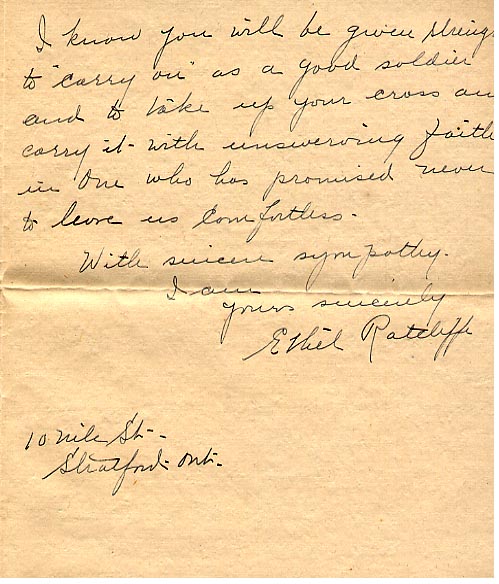 I know you will be given streng
to "carry on" as a good soldier
and to take up your cross an
carry it with unswerving faith
in One who has promised never
to leave us comfortless.
With sincere sympathy.
I am
yours sincerely
Ethel Ratcliffe
10 Nile St.
Stratford Ont.